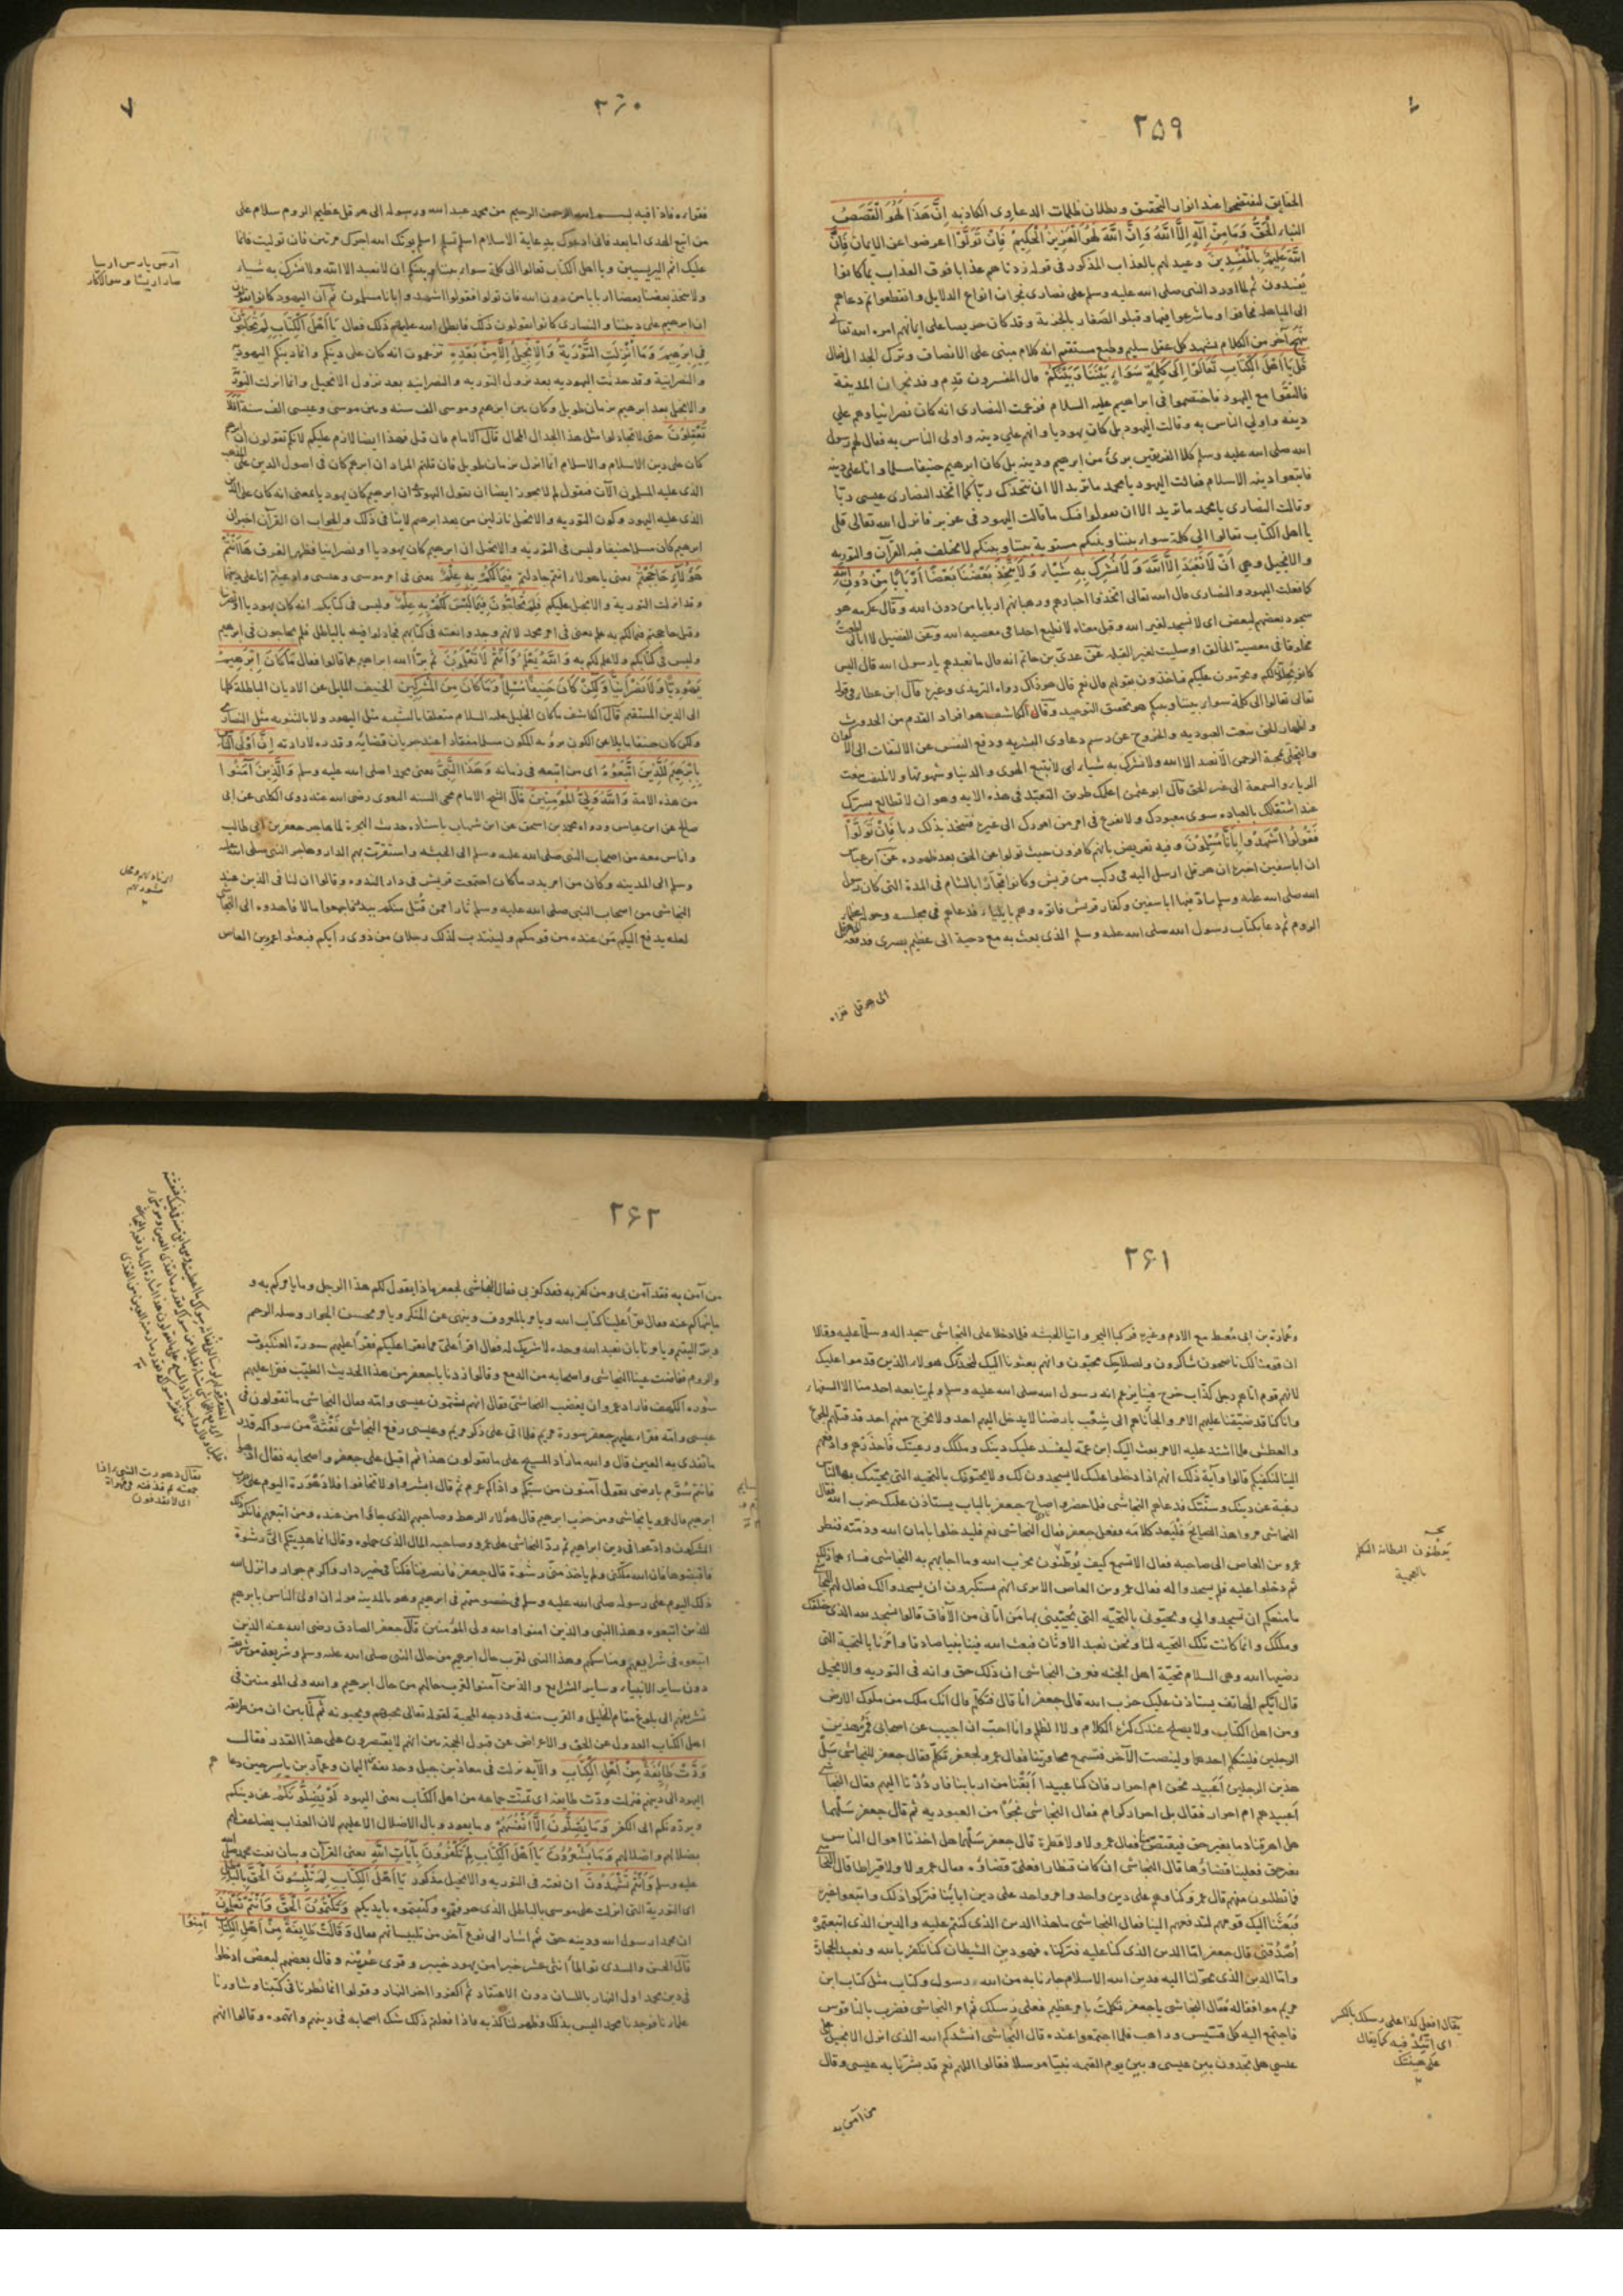 ۲۵۹
الحقايق لتفتضحوا عند انوار التحقيق وبطلان ظلمات الدعاوى الكاذبه اِنَّ هَذَا لَهُوَ الْقَصَصُ
الْحَقُّ وَمَا مِنْ اِلَهٍ اِلَّا اللّٰهُ وَاِنَّ اللّٰهَ لَهُوَ الْعَزِيزُ الْحَكِيمُ فَاِنْ تَوَلَّوْا اعرضوا عن الايمان فَاِنَّ
اللّٰهَ عَلِيمٌ بِالْمُفْسِدِينَ وعيد لهم بالعذاب المذكور فى قوله زدناهم عذابا فوق العذاب بما كانوا
يفسدون ثم لما اورد النبى صلى الله عليه وسلم على نصارى نجران انواع الدلايل وانقطعوا ثم دعاهم
الى المباهله فخافوا وما شرعوا فيها وقبلوا الصغار بالجزية وقد كان حريصا على ايمانهم امره الله تعالى
آخر من الكلام يشهد كل عقل سليم وطبع مستقيم انه كلام مبنى على الانصاف وترك الجدال فقال
قُلْ يَا اَهْلَ الْكِتَابِ تَعَالَوْا اِلَى كَلِمَةٍ سَوَاءٍ بَيْنَنَا وَبَيْنَكُمْ قال المفسرون قدم وفد نجران المدينة
فالتقوا مع اليهود فاختصموا فى ابراهيم عليه السلام فزعمت النصارى انه كان نصرانيا وهم على
دينه واولى الناس به وقالت اليهود بل كان يهوديا وانهم على دينه واولى الناس به فقال لهم رسول
الله صلى الله عليه وسلم كلا الفريقين برئ من ابرهيم ودينه بل كان ابرهيم حنيفا مسلما وانا على دينه
فاتبعوا دينه الاسلام فقالت اليهود يا محمد ما تريد الا ان نتخذك ربا كما اتخذ النصارى عيسى ربا
وقالت النصارى يا محمد ما تريد الا ان نقول فيك ما قالت اليهود فى عزير فانزل الله تعالى قل
يا اهل الكتاب تعالوا الى كلمة سواء بيننا وبينكم مستوية بيننا وبينكم لا يختلف فيه القرآن والتوريه
والانجيل وهى اَنْ لَا نَعْبُدَ اِلَّا اللّٰهَ وَلَا نُشْرِكَ بِهِ شَيْئًا وَلَا يَتَّخِذَ بَعْضُنَا بَعْضًا اَرْبَابًا مِنْ دُونِ اللّٰهِ
كما فعلت اليهود والنصارى قال الله تعالى اتخذوا احبارهم ورهبانهم اربابا من دون الله وقال عكرمه هو
سجود بعضهم لبعض اى لا نسجد لغير الله وقيل معناه لا نطيع احدا فى معصيه الله وعن الفضيل لا ابالى
مخلوقا فى معصية الخالق او صليت لغير القبله عن عدى بن حاتم انه قال ما نعبدهم يا رسول الله قال اليس
كانوا يحلون لكم ويحرمون عليكم فتاخذون بقولهم قال نعم قال هو ذاك رواه الترمذى وغيره قال ابن عطا فى قوله
تعالى تعالوا الى كلمة سواء بيننا وبينكم هو تحقيق التوحيد وقال الكاشف هو افراد القدم من الحدوث
النفس عن الالتفات الى
والتحلى بمحبة الرحمن الا نعبد الا الله ولا نشرك به شيئا اى لا نتبع الهوى والدنيا وشهوتها ولا نلتفت
قال ابو عثمن اعلمك طريق التعبد فى هذه الايه وهو ان لا تطالع بسرك
عند اشتغالك بالعباده سوى معبودك ولا تفزع فى امر من امورك الى غيره فتتخذ بذلك ربا فَاِنْ تَوَلَّوْا
فَقُولُوا اشْهَدُوا بِاَنَّا مُسْلِمُونَ وفيه تعريض بانهم كافرون حيث تولوا عن الحق بعد ظهوره عن ابن عباس
ان اباسفين اخبره ان هرقل ارسل اليه فى ركب من قريش وكانوا تجارا بالشام فى المدة التى كان رسول
الله صلى الله عليه وسلم ماد فيها اباسفين وكفار قريش فاتوه وهم بايلياء فدعاهم فى مجلسه وحوله عظماء
الروم ثم دعا بكتاب رسول الله صلى الله عليه وسلم الذى بعث به مع دحية الى عظيم بصرى فدفعه
الى هرقل فقراه
۷
۳۶۰
فقراه فاذا فيه بسم الله الرحمن الرحيم من محمد عبد الله ورسوله الى هرقل عظيم الروم سلام على
من اتبع الهدى اما بعد فانى ادعوك بدعاية الاسلام اسلم تسلم اسلم يؤتك الله اجرك مرتين فان توليت فانما
عليك اثم اليريسيين ويا اهل الكتاب تعالوا الى كلمة سواء بيننا وبينكم ان لا نعبد الا الله ولا نشرك به شيئا
ولا يتخذ بعضنا بعضا اربابا من دون الله فان تولوا فقولوا اشهدوا بانا مسلمون ثم ان اليهود كانوا يقولون
ان ابرهيم على ديننا والنصارى كانوا يقولون ذلك فابطل الله عليهم ذلك فقال يَا اَهْلَ الْكِتَابِ لِمَ تُحَاجُّونَ
فِى اِبْرَهِيمَ وَمَا اُنْزِلَتِ التَّوْرَيةُ وَالْاِنْجِيلُ اِلَّا مِنْ بَعْدِهِ تزعمون انه كان على دينكم وانما دينكم اليهودية
والنصرانية وقد حدثت اليهوديه بعد نزول التوريه والنصرانيه بعد نزول الانجيل وانما انزلت التورية
والانجيل بعد ابرهيم بزمان طويل وكان بين ابرهيم وموسى الف سنه وبين موسى وعيسى الف سنة اَفَلَا
تَعْقِلُونَ حتى لا تجادلوا مثل هذا الجدال المحال قال الامام فان قيل فهذا ايضا لازم عليكم لانكم تقولون ان ابرهيم
كان على دين الاسلام والاسلام انما انزل بزمان طويل فان قلتم المراد ان ابرهيم كان فى اصول الدين على المذهب
الذى عليه المسلمون الآن فنقول لم لا يجوز ايضا ان يقول اليهود ان ابرهيم كان يهوديا بمعنى انه كان على الدين
الذى عليه اليهود وكون التوريه والانجيل نازلين من بعد ابرهيم لا ينافى ذلك والجواب ان القرآن اخبر ان
ابرهيم كان مسلما حنيفا وليس فى التوريه والانجيل ان ابرهيم كان يهوديا او نصرانيا فظهر الفرق هَا اَنْتُمْ
هَؤُلَاءِ حَاجَجْتُمْ يعنى يا هولاء انتم جادلتم فِيمَا لَكُمْ بِهِ عِلْمٌ يعنى فى امر موسى وعيسى وادعيتم انا على دينهما
وقد انزلت التورية والانجيل عليكم فَلِمَ تُحَاجُّونَ فِيمَا لَيْسَ لَكُمْ بِهِ عِلْمٌ وليس فى كتابكم انه كان يهوديا او نصرانيا
وقيل حاججتم فيما لكم به علم يعنى فى امر محمد لانهم وجدوا نعته فى كتابهم فجادلوا فيه بالباطل فلم تحاجون فى ابرهيم
وليس فى كتابكم ولا علم لكم به وَاللّٰهُ يَعْلَمُ وَاَنْتُمْ لَا تَعْلَمُونَ ثم برأ الله ابراهيم مما قالوا فقال مَا كَانَ اِبْرَهِيمُ
يَهُودِيًّا وَلَا نَصْرَانِيًّا وَلَكِنْ كَانَ حَنِيفًا مُسْلِمًا وَمَا كَانَ مِنَ الْمُشْرِكِينَ الحنيف المايل عن الاديان الباطلة كلها
الى الدين المستقيم قال الكاشف ما كان الخليل عليه السلام متعلقا بالتشبيه مثل اليهود ولا بالثنويه مثل النصارى
ولكن كان حنيفا مايلا عن الكون برؤيه المكون مسلما منقادا عند جريان قضائه وقدره لارادته اِنَّ اَوْلَى النَّاسِ
بِاِبْرَهِيمَ لَلَّذِينَ اتَّبَعُوهُ اى من اتبعه فى زمانه وَهَذَا النَّبِىُّ يعنى محمدا صلى الله عليه وسلم وَالَّذِينَ آمَنُوا
من هذه الامة وَاللّٰهُ وَلِىُّ الْمُؤْمِنِينَ قال الشيخ الامام محى السنه البغوى رضى الله عنه روى الكلبى عن ابى
صالح عن ابن عباس ورواه محمد بن اسحق عن ابن شهاب باسناده حديث الهجرة لما هاجر جعفر بن ابى طالب
واناس معه من اصحاب النبى صلى الله عليه وسلم الى الحبشه واستقرت بهم الدار وهاجر النبى صلى الله عليه
وسلم الى المدينه وكان من امر بدر ما كان اجتمعت قريش فى دار الندوه وقالوا ان لنا فى الذين عند
النجاشى من اصحاب النبى صلى الله عليه وسلم ثارا ممن قتل منكم ببدر فاجمعوا مالا فاهدوه الى النجاشى
لعله يدفع اليكم من عنده من قومكم ولينتدب لذلك رجلان من ذوى رأيكم فبعثوا عمرو بن العاص
۲۶۱
وعمارة بن ابى معيط مع الادم وغيره فركبا البحر واتيا الحبشه فلما دخلا على النجاشى سجدا له وسلما عليه وقالا
ان قومنا لك ناصحون شاكرون ولصلاحك محبون وانهم بعثونا اليك لنحذرك هولاء الذين قدموا عليك
لانهم قوم اتبعوا رجل كذاب خرج فينا يزعم انه رسول الله صلى الله عليه وسلم ولم يتابعه احد منا الا السفهاء
وانا كنا قد ضيقنا عليهم الامر والجأناهم الى شعب بارضنا لا يدخل اليهم احد ولا يخرج منهم احد قد قتلهم الجوع
والعطش فلما اشتد عليه الامر بعث اليك ابن عمه ليفسد عليك دينك وملكك ورعيتك فاحذرهم وادفعهم
الينا لنكفيكم قالوا وآية ذلك انهم اذا دخلوا عليك لا يسجدون لك ولا يحيونك بالتحيه التى يحييك بها الناس
رغبة عن دينك وسنتك فدعاهم النجاشى فلما حضروا صاح جعفر بالباب يستاذن عليك حزب الله فقال
النجاشى مروا هذا الصايح فليعد كلامه ففعل جعفر فقال النجاشى نعم فليدخلوا بامان الله وذمته فنظر
عمرو بن العاص الى صاحبه فقال الا تسمع كيف يرطنون بحزب الله وما اجابهم به النجاشى فساءهما ذلك
ثم دخلوا عليه فلم يسجدوا له فقال عمرو بن العاص الا ترى انهم يستكبرون ان يسجدوا لك فقال لهم النجاشى
ما منعكم ان تسجدوا لى وتحيونى بالتحيه التى يحيينى بها من اتانى من الآفاق قالوا نسجد لله الذى خلقك
وملكك وانما كانت تلك التحيه لنا ونحن نعبد الاوثان فبعث الله فينا نبيا صادقا وامرنا بالتحية التى
رضيها الله وهى السلام تحية اهل الجنه فعرف النجاشى ان ذلك حق وانه فى التوريه والانجيل
قال ايكم الهاتف يستاذن عليك حزب الله قال جعفر انا قال فتكلم قال انك ملك من ملوك الارض
ومن اهل الكتاب ولا يصلح عندك كثرة الكلام ولا الظلم وانا احب ان اجيب عن اصحابى فمر هذين
الرجلين فليتكلم احدهما ولينصت الآخر فتسمع محاورتنا فقال عمرو لجعفر تكلم فقال جعفر للنجاشى سل
هذين الرجلين اعبيد نحن ام احرار فان كنا عبيدا ابقنا من اربابنا فارددنا اليهم فقال النجاشى
اعبيد هم ام احرار فقال بل احرار كرام فقال النجاشى نجوا من العبوديه ثم قال جعفر سلهما
هل اهرقنا دما بغير حق فيقتص منا فقال عمرو لا ولا قطرة قال جعفر سلهما هل اخذنا اموال الناس
بغير حق فعلينا قضاؤها قال النجاشى ان كان قنطارا فعلى قضاؤه فقال عمرو لا ولا قيراطا قال النجاشى
فما تطلبون منهم قال عمرو كنا وهم على دين واحد وامر واحد على دين ابائنا فتركوا ذلك واتبعوا غيره
فبعثنا اليك قومهم لتدفعهم الينا فقال النجاشى ما هذا الدين الذى كنتم عليه والدين الذى اتبعتموه
اصدقنى قال جعفر اما الدين الذى كنا عليه فتركناه فهو دين الشيطان كنا نكفر بالله ونعبد الحجارة
واما الدين الذى تحولنا اليه فدين الله الاسلام جاءنا به من الله رسول وكتاب مثل كتاب ابن
مريم موافقا له فقال النجاشى يا جعفر تكلمت بامر عظيم فعلى رسلك ثم امر النجاشى فضرب بالناقوس
فاجتمع اليه كل قسيس وراهب فلما اجتمعوا عنده قال النجاشى انشدكم الله الذى انزل الانجيل على
عيسى هل تجدون بين عيسى وبين يوم القيمه نبيا مرسلا فقالوا اللهم نعم قد بشرنا به عيسى وقال
من آمن به
يقال افعل كذا على رسلك بالكسر
اى اتئد فيه كما يقال
على هينتك
۲۶۲
من آمن به فقد آمن بى ومن كفر به فقد كفر بى فقال النجاشى لجعفر ماذا يقول لكم هذا الرجل وما يامركم به و
ما ينهاكم عنه فقال يقرأ علينا كتاب الله ويامر بالمعروف وينهى عن المنكر ويامر بحسن الجوار وصله الرحم
وبر اليتيم ويامرنا بان نعبد الله وحده لا شريك له فقال اقرأ على مما يقرأ عليكم فقرأ عليهم سورة العنكبوت
والروم ففاضت عينا النجاشى واصحابه من الدمع وقالوا زدنا يا جعفر من هذا الحديث الطيب فقرأ عليهم
سورة الكهف فاراد عمرو ان يغضب النجاشى فقال انهم يشتمون عيسى وامه فقال النجاشى ما تقولون فى
عيسى وامه فقرأ عليهم جعفر سورة مريم فلما اتى على ذكر مريم وعيسى رفع النجاشى نفثة من سواكه قدر
ما تقذى به العين قال والله ما زاد المسيح على ما تقولون هذا ثم اقبل على جعفر واصحابه فقال اذهبوا
فانتم سيوم بارضى يقول آمنون من سبكم واذاكم غرم ثم قال ابشروا ولا تخافوا فلا دهورة اليوم على حزب
ابرهيم قال عمرو يا نجاشى ومن حزب ابرهيم قال هؤلاء الرهط وصاحبهم الذى جاؤا من عنده ومن اتبعهم فانكر ذلك
المشركون وادعوا فى دين ابراهيم ثم رد النجاشى على عمرو وصاحبه المال الذى حملوه وقال انما هديتكم الى رشوة
فاقبضوها فان الله ملكنى ولم ياخذ منى رشوة قال جعفر فانصرفنا فكنا فى خير دار واكرم جوار وانزل الله
ذلك اليوم على رسوله صلى الله عليه وسلم فى خصومتهم فى ابرهيم وهو بالمدينه قوله ان اولى الناس بابرهيم
للذين اتبعوه وهذا النبى والذين امنوا والله ولى المؤمنين قال جعفر الصادق رضى الله عنه الذين
اتبعوه فى شرايعهم ومناسكهم وهذا النبى لقرب حال ابرهيم من حال النبى صلى الله عليه وسلم وشريعته من شريعته
دون ساير الانبياء وساير الشرايع والذين آمنوا لقرب حالهم من حال ابرهيم والله ولى المؤمنين فى
تشريفهم الى بلوغ مقام الخليل والقرب منه فى درجه المحبة لقوله تعالى يحبهم ويحبونه ثم لما بين ان من طريقه
اهل الكتاب العدول عن الحق والاعراض عن قبول الحجة بين انهم لا يقتصرون على هذا القدر فقال
وَدَّتْ طَائِفَةٌ مِنْ اَهْلِ الْكِتَابِ والآيه نزلت فى معاذ بن جبل وحذيفة بن اليمان وعمار بن ياسر حين دعاهم
اليهود الى دينهم فنزلت ودت طايفة اى تمنت جماعه من اهل الكتاب يعنى اليهود لَوْ يُضِلُّونَكُمْ عن دينكم
ويردونكم الى الكفر وَمَا يُضِلُّونَ اِلَّا اَنْفُسَهُمْ وما يعود وبال الاضلال الا عليهم لان العذاب يضاعف لهم
بضلالهم واضلالهم وَمَا يَشْعُرُونَ يَا اَهْلَ الْكِتَابِ لِمَ تَكْفُرُونَ بِآيَاتِ اللّٰهِ يعنى القرآن وبيان نعت محمد صلى الله
عليه وسلم وَاَنْتُمْ تَشْهَدُونَ ان نعته فى التوريه والانجيل مذكور يَا اَهْلَ الْكِتَابِ لِمَ تَلْبِسُونَ الْحَقَّ بِالْبَاطِلِ
اى التورية التى انزلت على موسى بالباطل الذى حرفتموه وكتبتموه بايديكم وَتَكْتُمُونَ الْحَقَّ وَاَنْتُمْ تَعْلَمُونَ
ان محمدا رسول الله ودينه حق ثم اشار الى نوع آخر من تلبيساتهم فقال وَقَالَتْ طَائِفَةٌ مِنْ اَهْلِ الْكِتَابِ آمِنُوا
قال الحسن والسدى تواطأ اثنى عشر حبرا من يهود خيبر وقرى عرينه وقال بعضهم لبعض ادخلوا
فى دين محمد اول النهار باللسان دون الاعتقاد ثم اكفروا آخر النهار وقولوا انا نظرنا فى كتبنا وشاورنا
علماءنا فوجدنا محمدا ليس بذلك وظهر لنا كذبه فاذا فعلتم ذلك شك اصحابه فى دينهم واتهموه وقالوا انهم